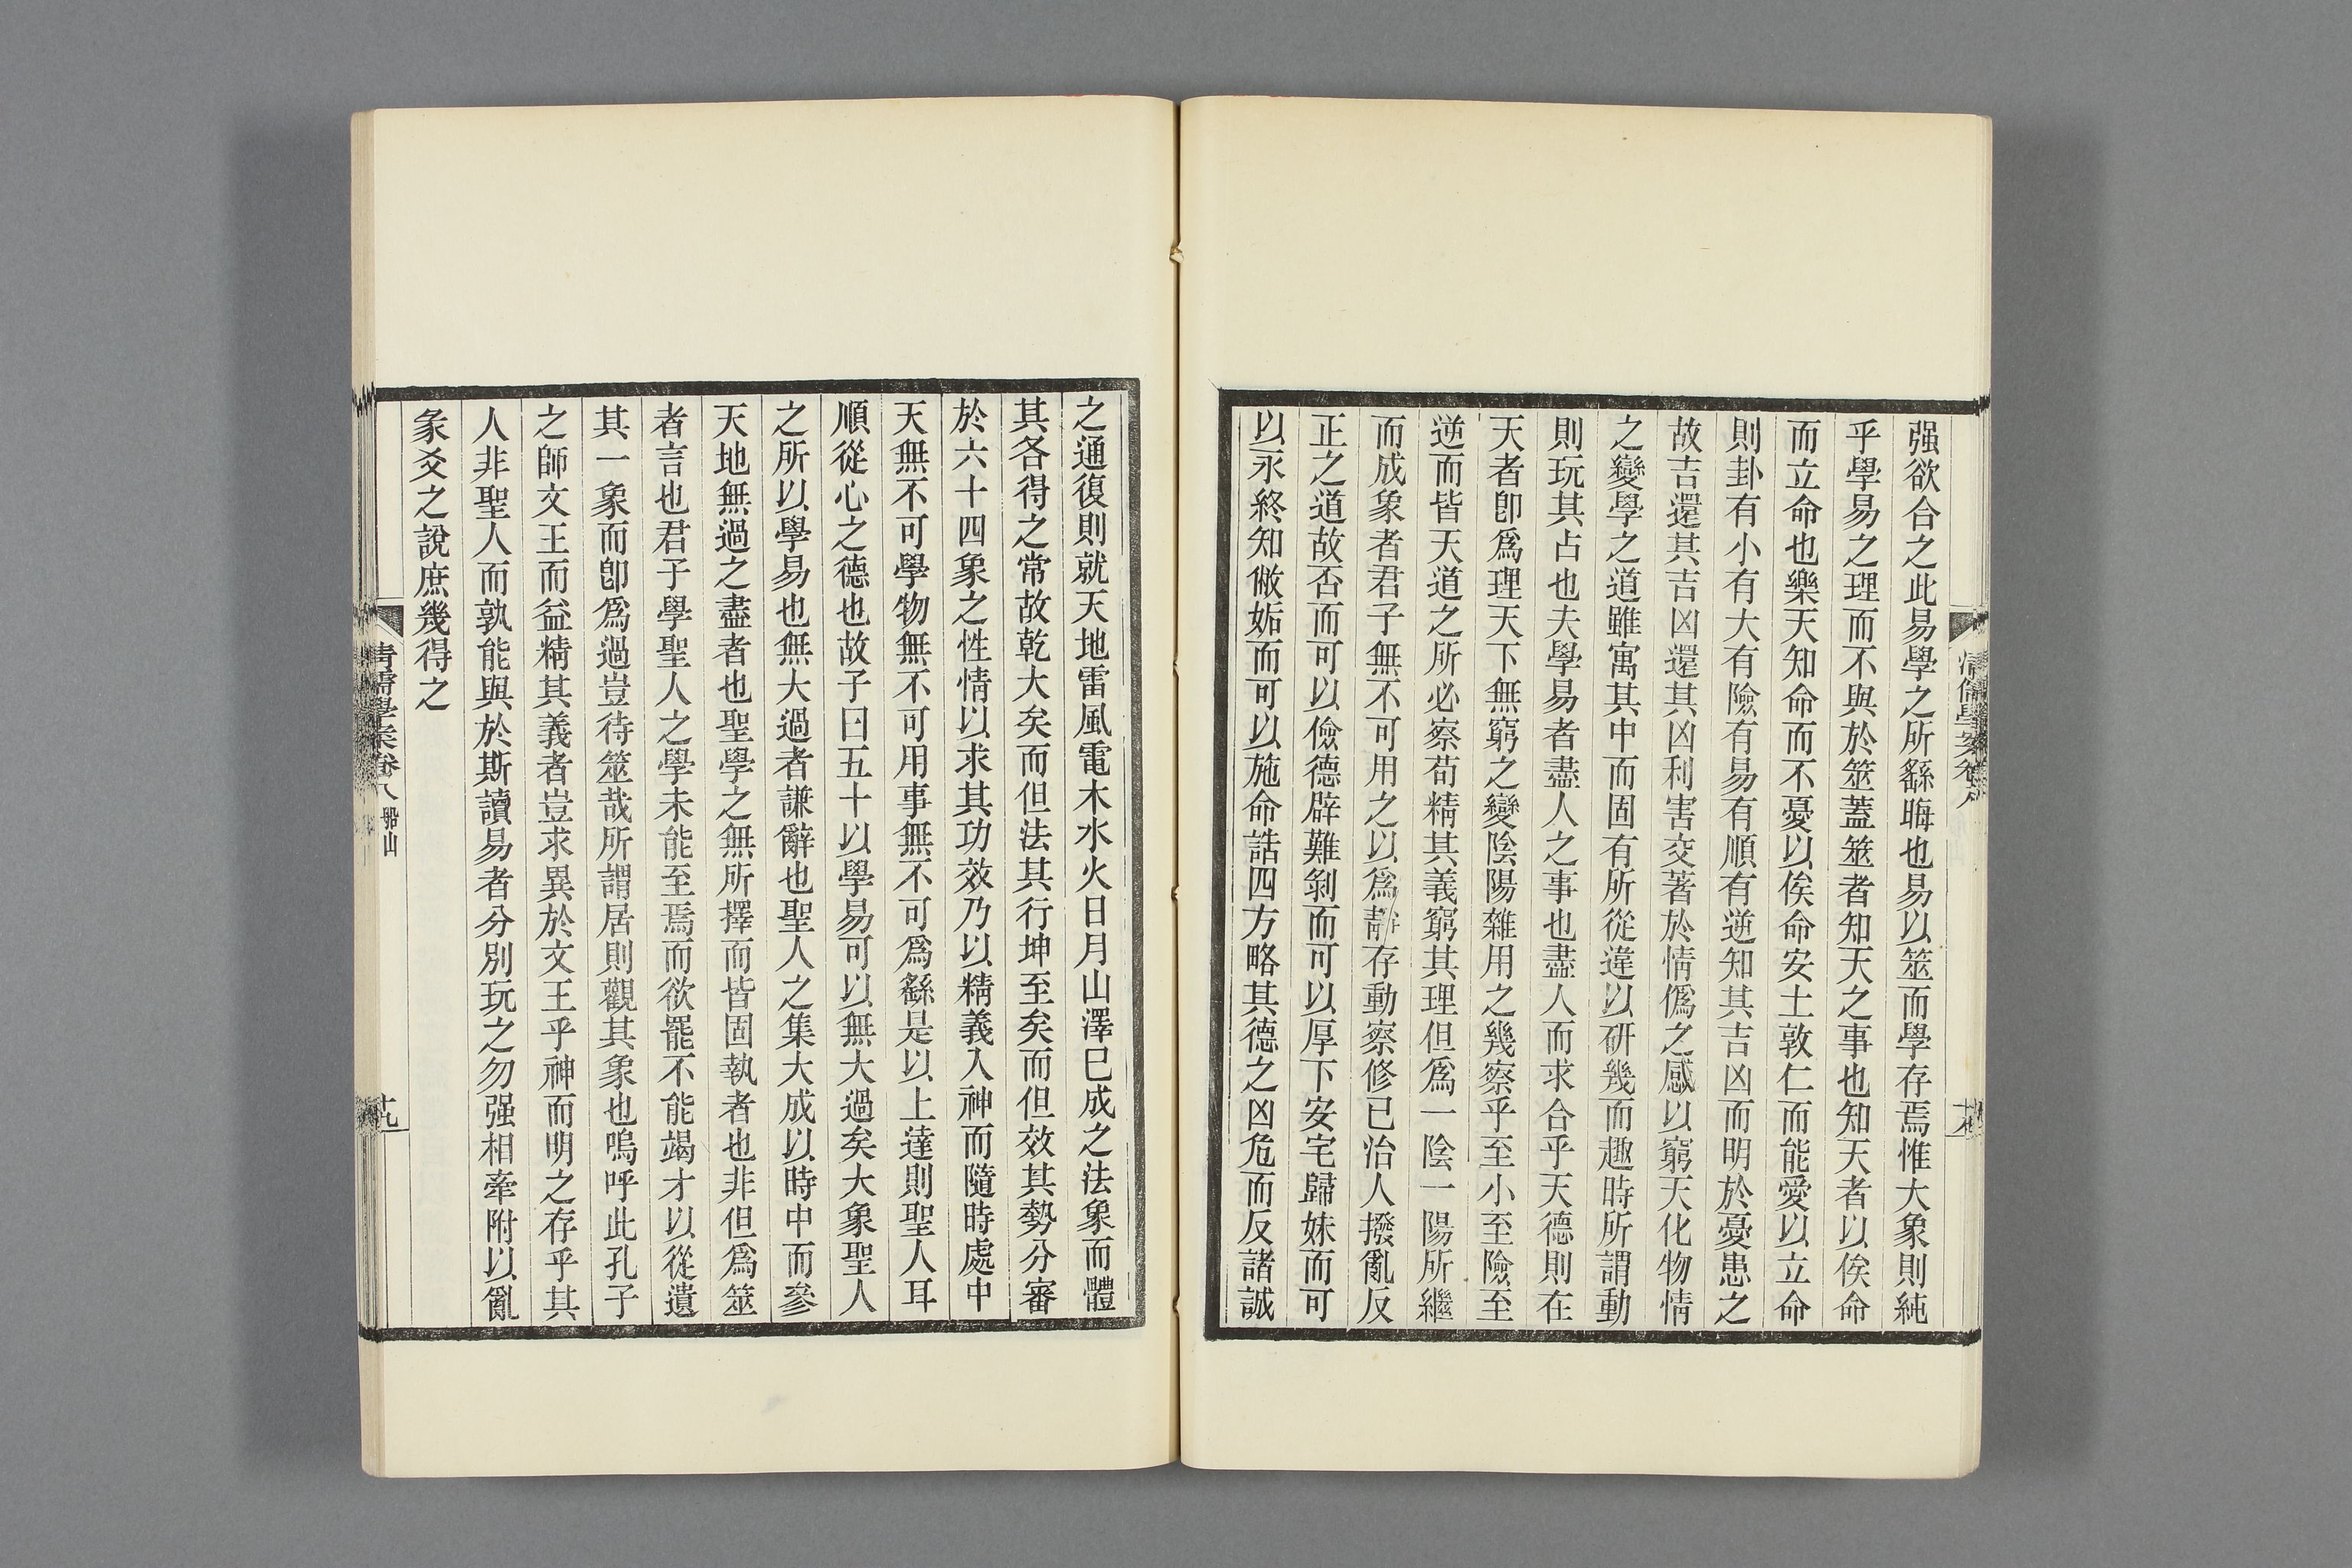 强欲合之此易學之所繇晦也易以筮而學存焉惟大象則純
乎學易之理而不與於筮蓋筮者知天之事也知天者以俟命
而立命也樂天知命而不憂以俟命安土敦仁而能愛以立命
則卦有小有大有險有易有順有逆知其吉凶而明於憂患之
故吉還其吉凶還其凶利害交著於情僞之感以窮天化物情
之變學之道雖寓其中而固有所從違以研幾而趣時所謂動
則玩其占也夫學易者盡人之事也盡人而求合乎天德則在
天者卽爲理天下無窮之變陰陽雜用之幾察乎至小至險至
逆而皆天道之所必察苟精其義窮其理但爲一陰一陽所繼
而成象者君子無不可用之以爲靜存動察修己治人撥亂反
正之道故否而可以儉德辟難剝而可以厚下安宅歸妹而可
以永終知敝姤而可以施命誥四方略其德之凶危而反諸誠
之通復則就天地雷風電木水火日月山澤已成之法象而體
其各得之常故乾大矣而但法其行坤至矣而但效其勢分審
於六十四象之性情以求其功效乃以精義入神而隨時處中
天無不可學物無不可用事無不可爲繇是以上達則聖人耳
順從心之德也故子曰五十以學易可以無大過矣大象聖人
之所以學易也無大過者謙辭也聖人之集大成以時中而參
天地無過之盡者也聖學之無所擇而皆固執者也非但爲筮
者言也君子學聖人之學未能至焉而欲罷不能竭才以從遺
其一象而卽爲過豈待筮哉所謂居則觀其象也嗚呼此孔子
之師文王而益精其義者豈求異於文王乎神而明之存乎其
人非聖人而孰能與於斯讀易者分別玩之勿强相牽附以亂
彖爻之說庶幾得之
清儒學案卷八 船山
十九